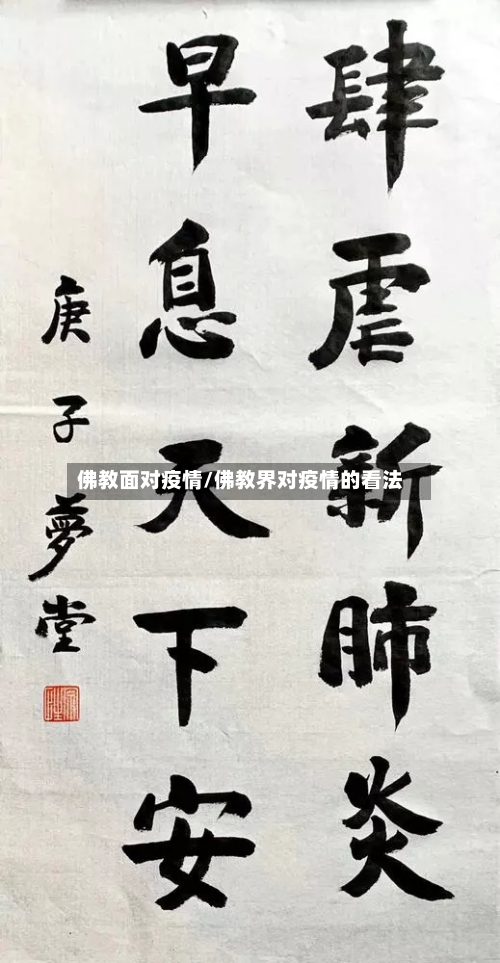 肆虐新肺炎
早息天下安
庚子夢堂
佛教面对疫情/佛教界对疫情的看法